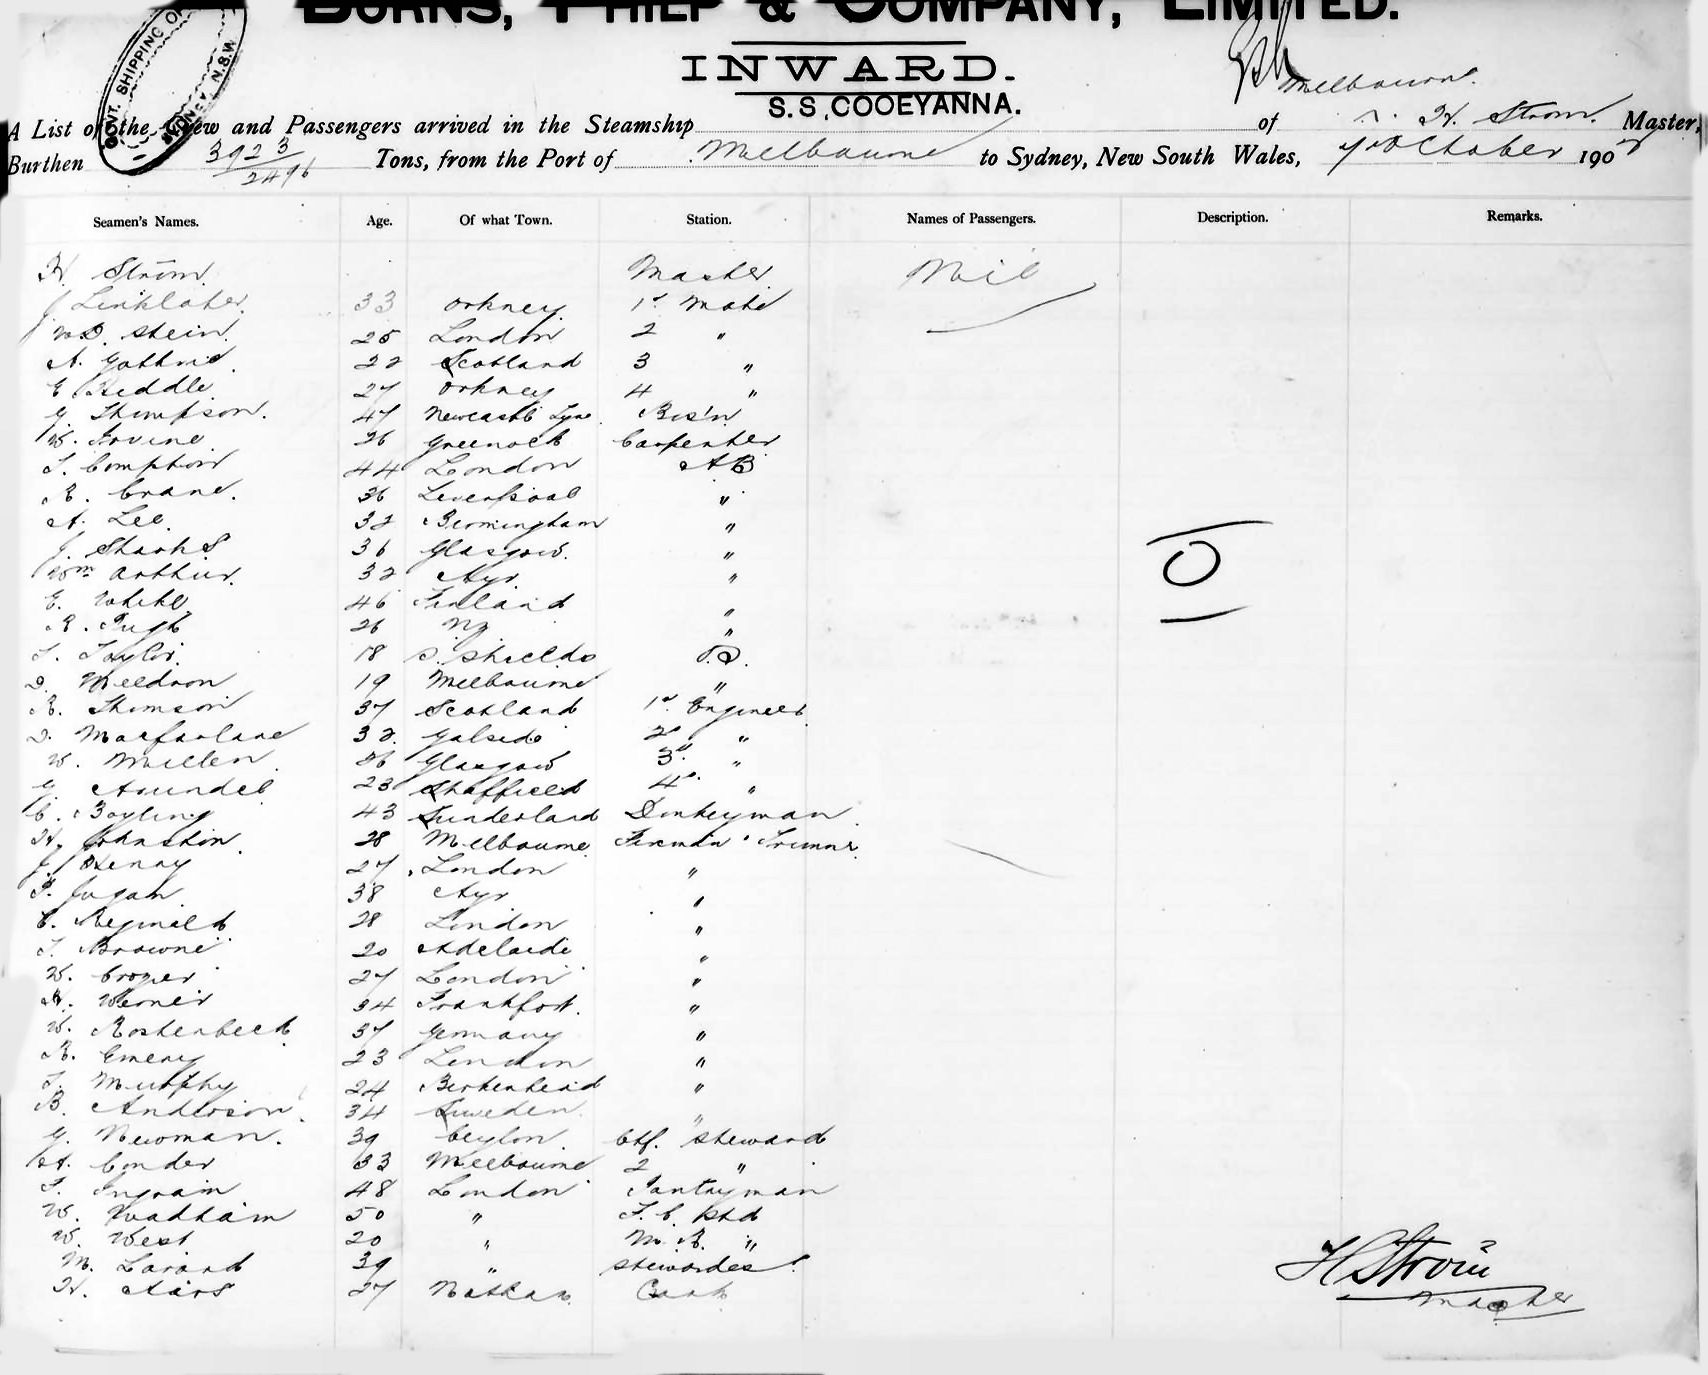 BURNS, PHILP & COMPANY, LIMITED.
INWARD.
S.S. COOEYANNA.
GOVT. SHIPPING O
SYDNEY, N.S.W.
Melbourne.
A List of the Crew and Passengers arrived in the Steamship of H. Strom. Master,
Burthen 3923/2496 Tons, from the Port of Melbourne to Sydney, New South Wales, 7th October 190
Seamen's Names. Age. Of what Town. Station. Names of Passengers. Description. Remarks.
H. Ström Master Nil
J. Linklater. 33 Orkney 1st Mate
W.D. Stein. 25 London 2 "
A. Guthrie 22 Scotland 3 "
E Heddle 27 Orkney 4 "
G. Thompson. 47 Newcastle Tyne Bos'n
W. Irvine 26 Greenock Carpenter
T. Compton 44 London AB
R. Crane. 36 Liverpool "
A. Lee. 32 Birmingham "
J. Sharks 36 Glasgow. "
Wm Arthur. 32 Ayr. "
E. 46 Finland "
R. Pugh 26 NZ "
T. Taylor. 18 S. Shields O.S.
D. Weldoon 19 Melbourne "
R. Thomson 37 Scotland 1st Engineer
D. Macfarlane 32 2d "
W. Millen 26 Glasgow 3d "
G. Arundel 23 Sheffield 4th "
C. Boyling 43 Sunderland Donkeyman
H. Johnston. 28 Melbourne Fireman & Trimmer
J. Henry 27 London "
P. Jugan 38 Ayr "
C. Reginald 28 London "
T. Browne 20 Adelaide "
W. Crozier 27 London "
A. Werner 34 Frankfort. "
W. Rostenbeck 37 Germany "
R. Emery 23 London "
T. Murphy 24 Birkenhead "
B. Anderson. 34 Sweden "
G. Newman. 39 Ceylon. Chf. Steward
A. Conder 33 Melbourne 2 "
T. Ingram 48 London Pantryman
W. Wadham 50 " F. C. Std
W. West 20 " M. R. "
M. Larard 39 " Stewardess
H. Stars 27 Cook
O
HStröm
Master